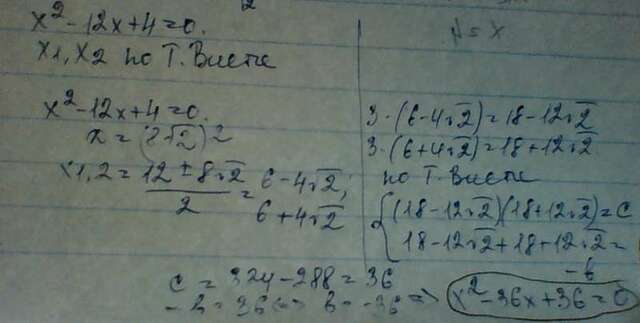 x²-12x+4=0.
x1, x2 по Т. Виета
x²-12x+4=0.
x = (8√2)²
x1,2 = (12 ± 8√2)/2 = 6-4√2; 6+4√2
3·(6-4√2)=18-12√2
3·(6+4√2)=18+12√2
по Т. Виета
{(18-12√2)(18+12√2)=c
18-12√2+18+12√2=-b
c = 324-288=36
-b=36 <=> b=-36 => x²-36x+36=0